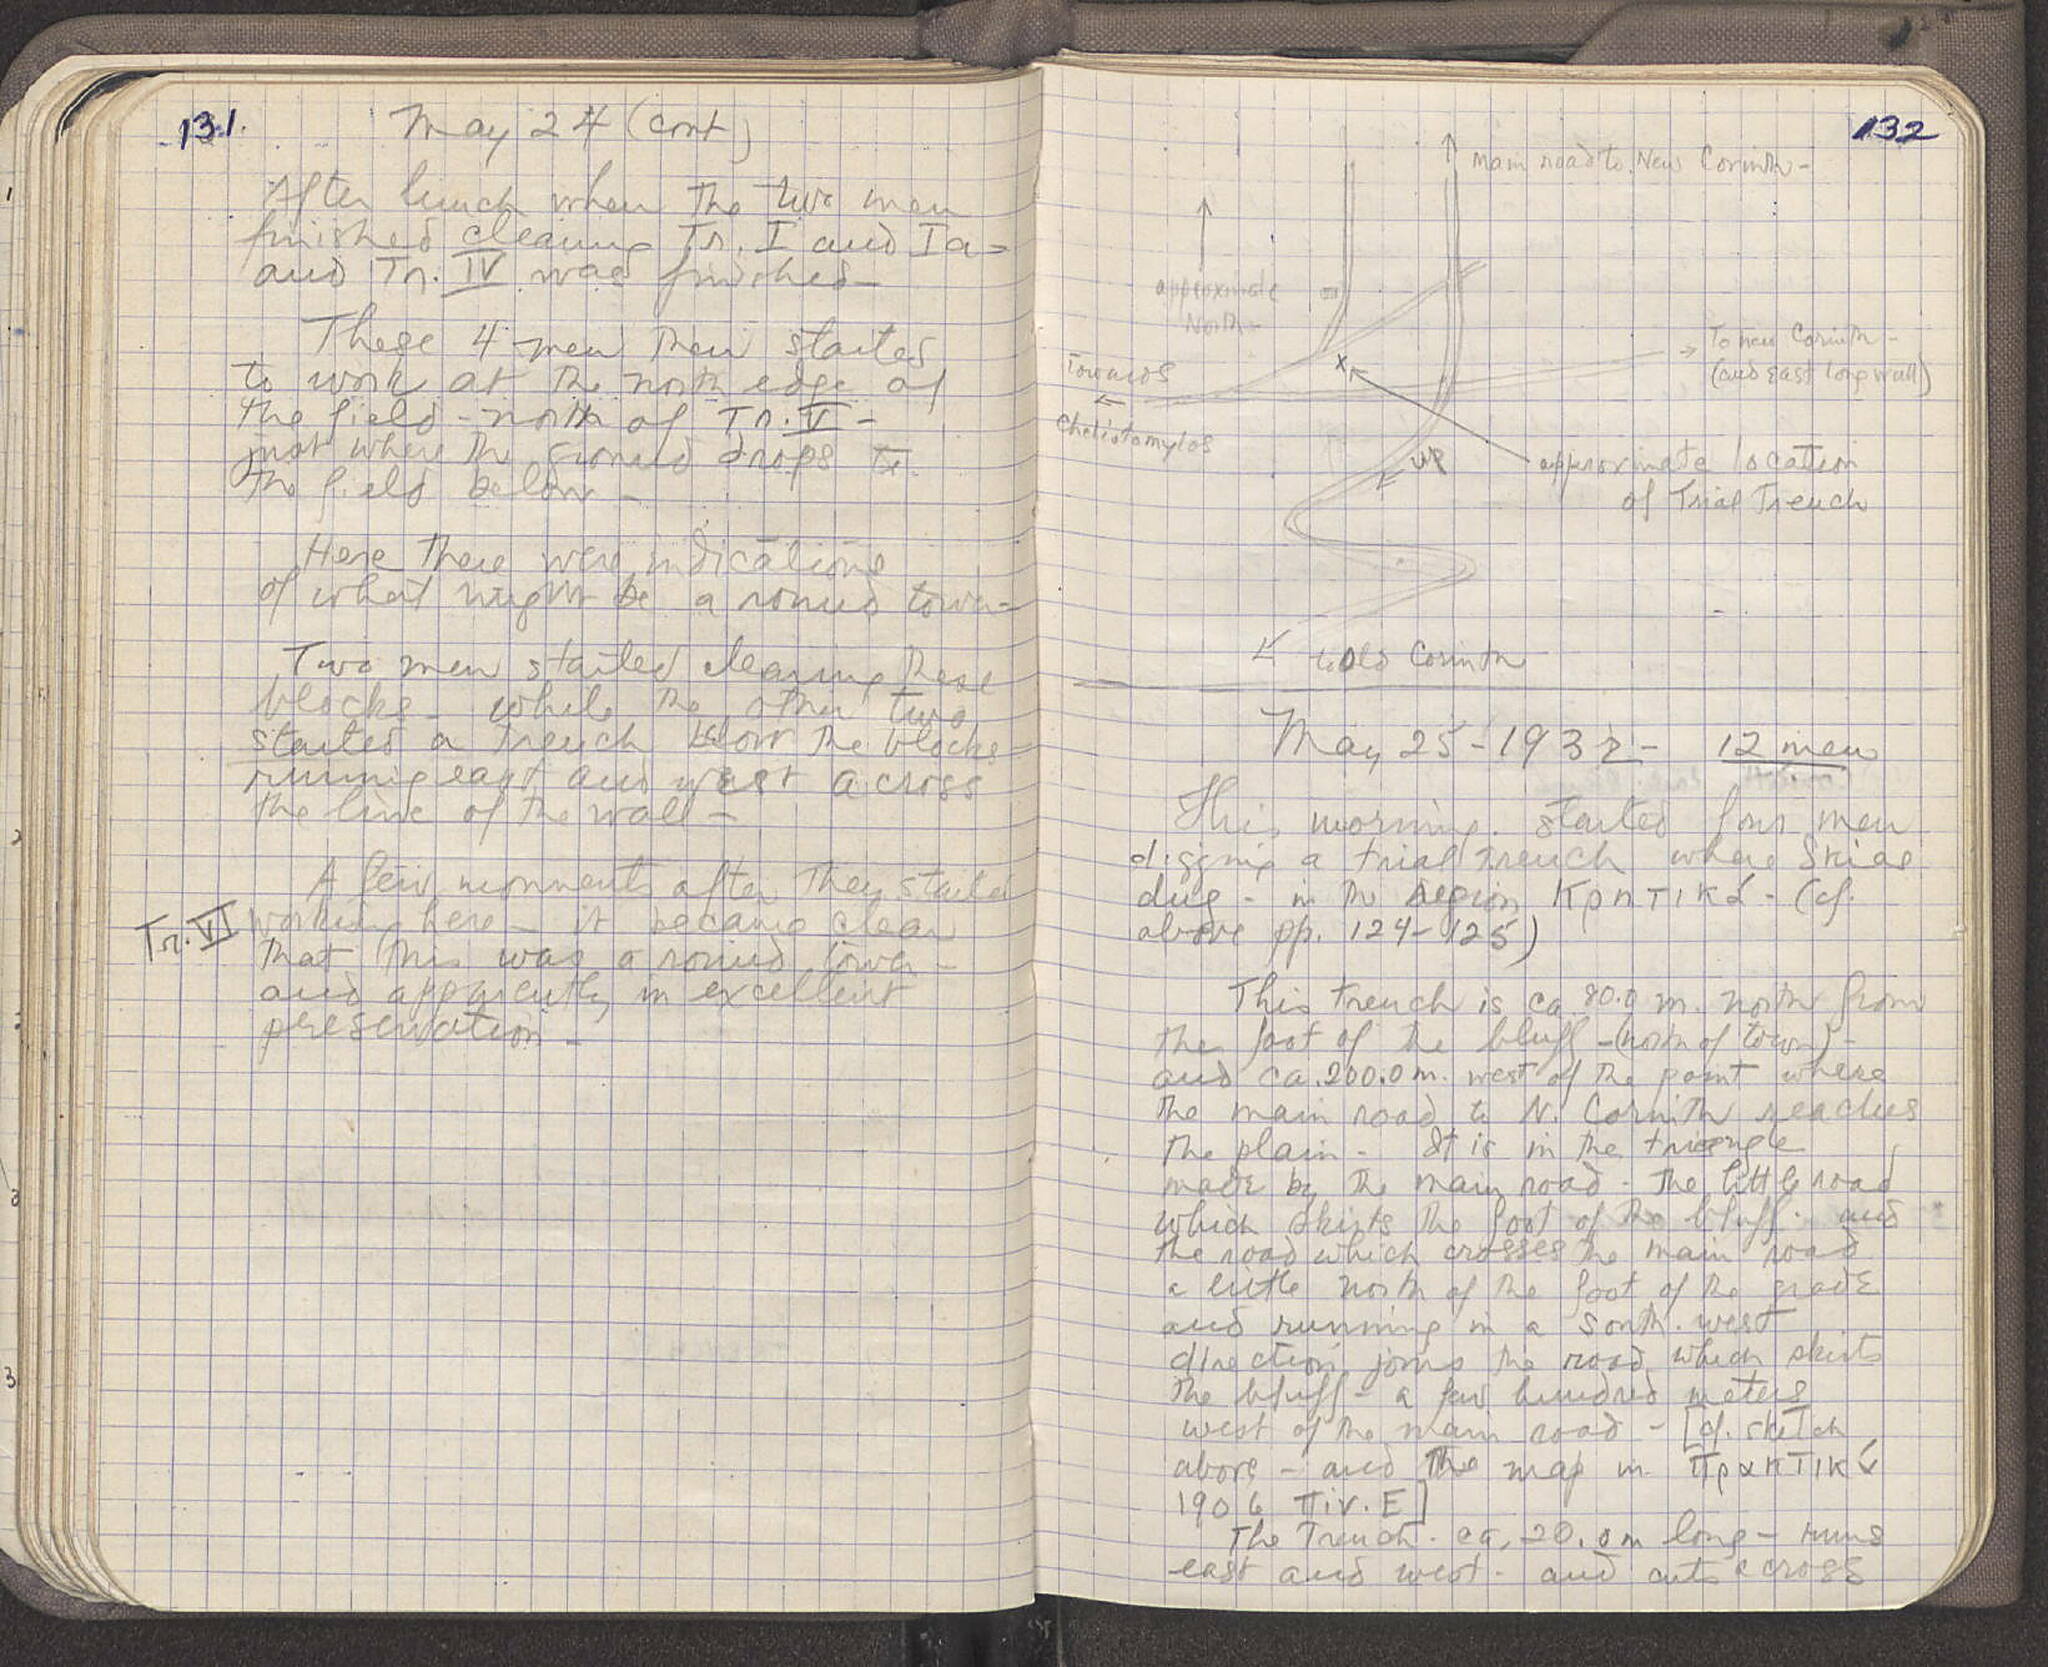 131.
May 24 (cont)
After lunch when the two men
finished cleaning Tr. I and Ia -
and Tr. IV was finished -
These 4 men then started
to work at the north edge of
the field - north of Tr. V -
just where the ground drops to
the field below -
Here there were indications
of what might be a round tower -
Two men started cleaning these
blocks - while the other two
started a trench below the blocks
running east and west across
the line of the wall -
A few moments after they started
Tr. VI
working here - it became clear
that this was a round tower -
and apparently in excellent
preservation -
132
Main road to New Corinth -
approximate
North -
To New Corinth -
(and East long wall)
Towards
Cheliotomylos
X
up
approximate location
of Trial Trench
to Old Corinth
May 25 - 1932 - 12 men
This morning started four men
digging a trial trench where Skias
dug - in the region - (cf.
above pp. 124-125)
This trench is ca. 80.0 m. north from
the foot of the bluff - (north of town) -
and ca. 200.0 m. west of the point where
the main road to N. Corinth reaches
the plain - It is in the triangle
made by the main road - the little road
which skirts the foot of the bluff - and
the road which crosses the main road
a little north of the foot of the grade
and running in a south-west
direction joins the road which skirts
the bluff - a few hundred meters
west of the main road - [cf. sketch
above - and the map in Πρακτικά
1906 Πιν. Ε]
The Trench - ca. 20.0 m long - runs
east and west - and cuts across